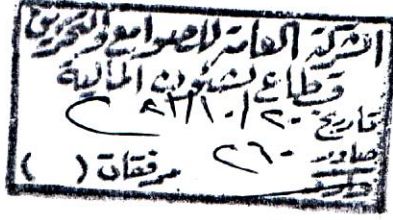 الشركة العامة للصوامع والتخزين
قطاع الشئون المالية
تاريخ ٢٠ / ١٠ /
صادر ٢٦٠
مرفقات ( )